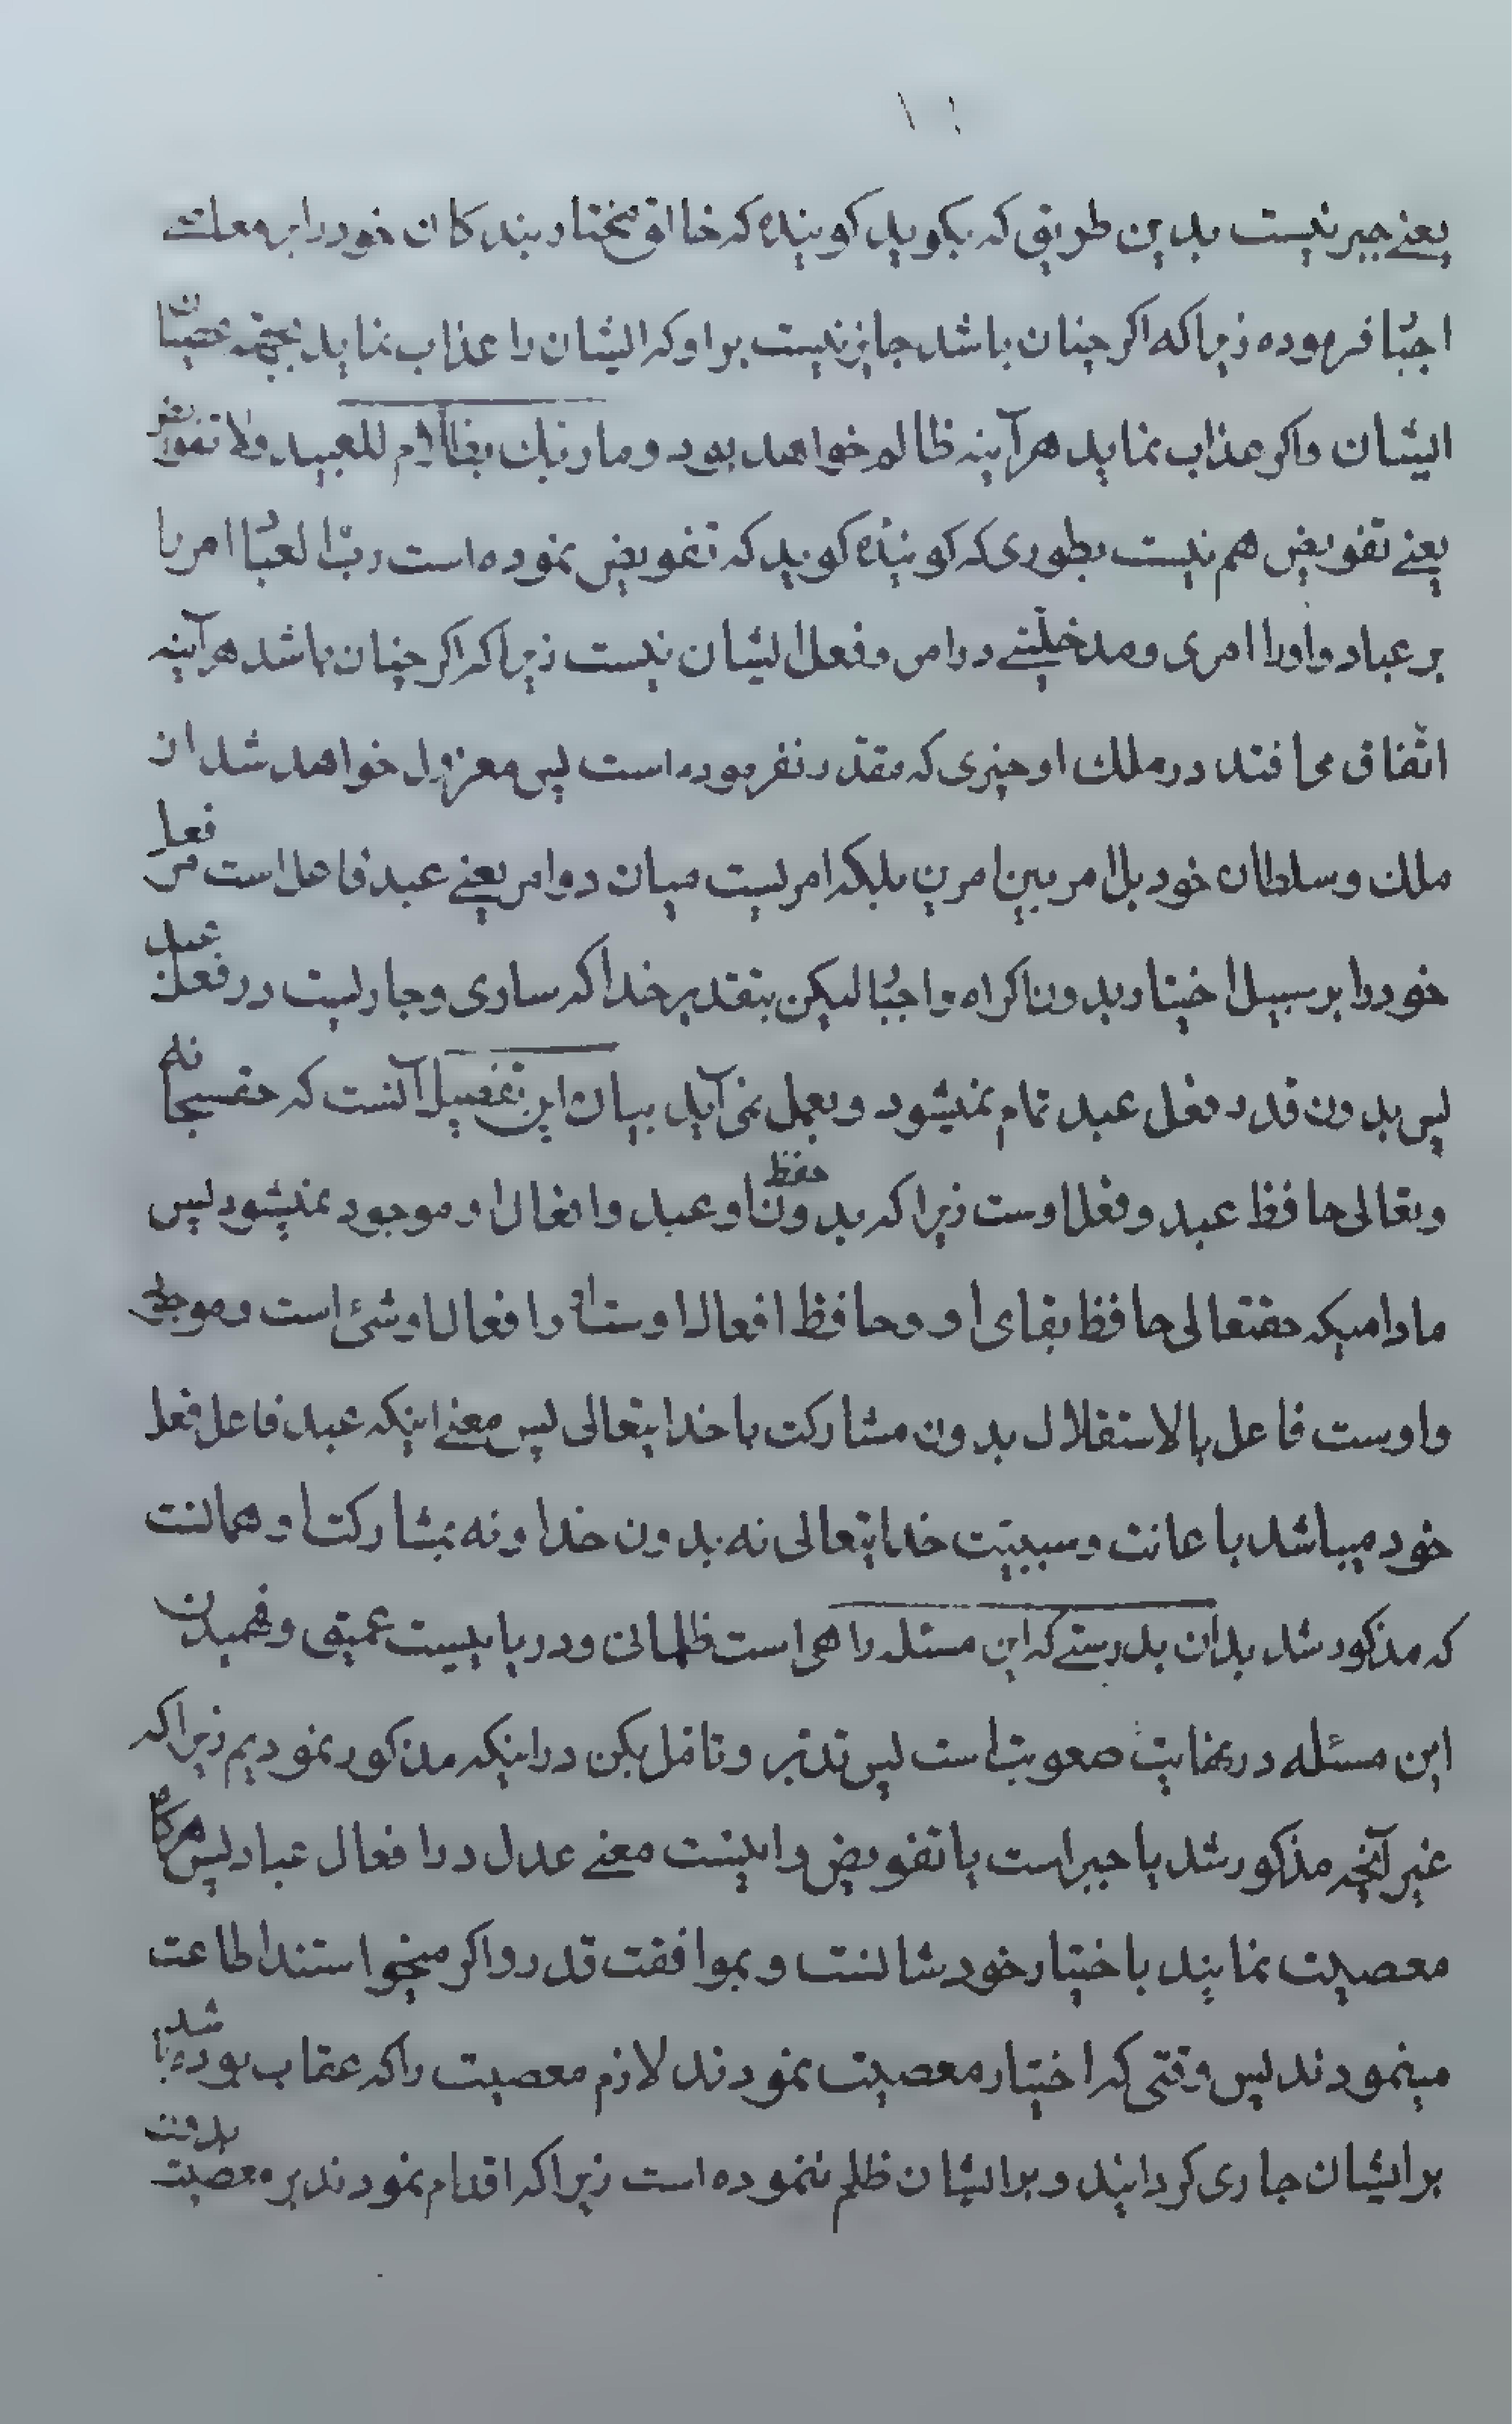 ۱۱
یعنے جبر نیست بدین طریق که بکوید کوینده که خالق مختار بندکان خود را بر معاصی
اجبار فرموده زیرا که اکر چنان باشد جایز نیست بر او که ایشان را عذاب نماید بجهة عصیان
ایشان و اکر عذاب نماید هرآینه ظالم خواهد بود و ما ربك بظلام للعبید ولا تفویض
یعنے تفویض هم نیست بطوری که کوینده کوید که تفویض نموده است رب العباد امر را
بر عباد و او را امری و مدخلیتے در امر و فعل ایشان نیست زیرا که اکر چنان باشد هرآینه
اتفاق می افتد در ملك او چیزی که مقدر نفرموده است پس معزول خواهد شد از
ملك و سلطان خود بل امر بین امرین بلکه امریست میان دو امر یعنے عبد فاعل است مر فعل
خود را بر سبیل اختیار بدون اکراه و اجبار لیکن بتقدیر خدا که ساری و جاریست در فعل عبد
پس بدون قدر فعل عبد تمام نمیشود و بعمل نمی آید بیان این تفصیل آنست که حقسبحانه
وتعالی حافظ عبد و فعل اوست زیرا که بدون حفظ او عبد و افعال او موجود نمیشود پس
مادامیکه حقتعالی حافظ بقای او و حافظ افعال اوست او را افعال او شئ است و موجود
و اوست فاعل بالاستقلال بدون مشارکت با خدایتعالی پس معنے اینکه عبد فاعل فعل
خود میباشد با عانت و سببیت خدایتعالی نه بدون خدا و نه بمشارکت او همانست
که مذکور شد بدان بدرستے که این مسئله راهی است ظلمانی و دریاییست عمیق و فهمیدن
این مسئله در نهایت صعوبت است پس تدبر و تامل بکن در اینکه مذکور نمودیم زیرا که
غیر آنچه مذکور شد یا جبر است یا تفویض و اینست معنے عدل در افعال عباد پس هرکاه
معصیت نمایند باختیار خودشانست و بموافقت قدر و اکر میخواستند اطاعت
مینمودند پس وقتی که اختیار معصیت نمودند لازم معصیت را که عقاب بوده باشد
بر ایشان جاری کردانید و بر ایشان ظلم ننموده است زیرا که اقدام نمودند بر معصیت بدون